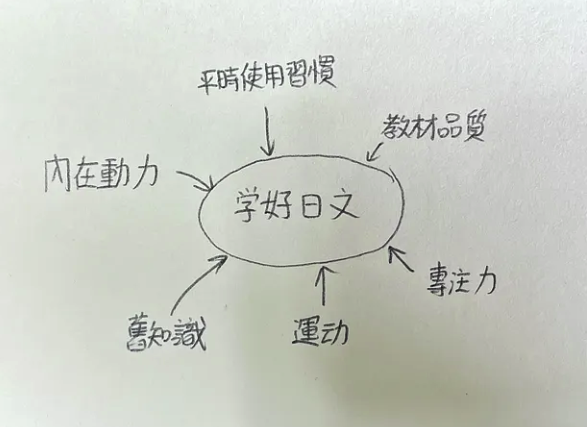 平時使用習慣
教材品質
內在動力
学好日文
專注力
舊知識
運动